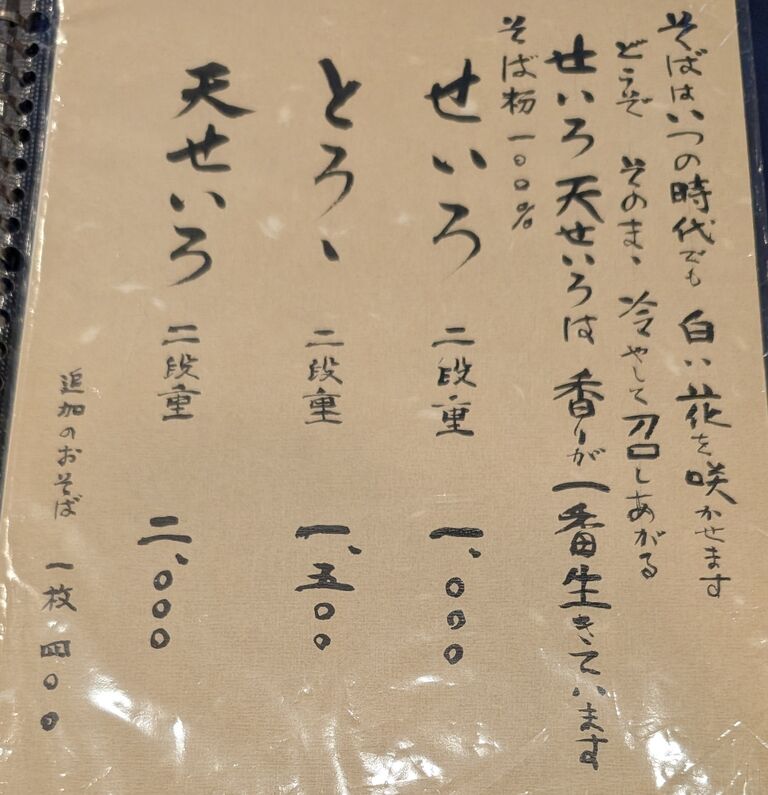 そばはいつの時代でも 白い花を咲かせます
どうぞ そのまゝ 冷やして召しあがる
せいろ 天せいろは 香りが一番生きています
そば粉 一〇〇%
せいろ 二段重 一、〇〇〇
とろゝ 二段重 一、五〇〇
天せいろ 二段重 二、〇〇〇
追加のおそば 一枚 四〇〇